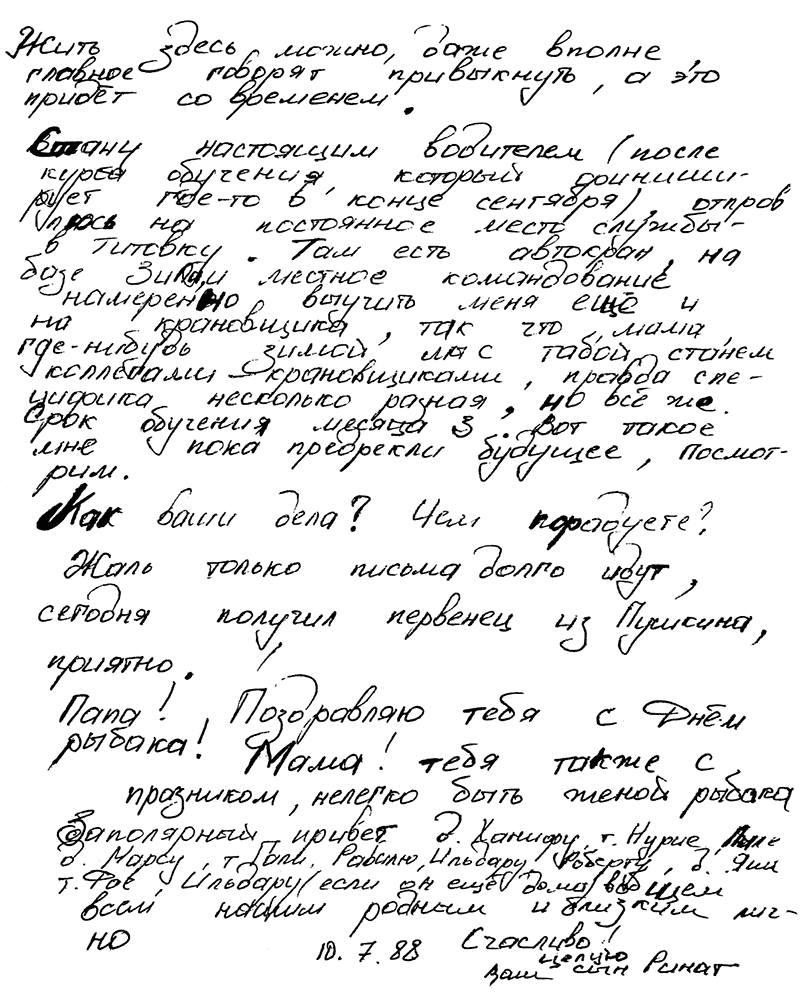 Жить здесь можно, даже вполне,
главное говорят привыкнуть, а это
придёт со временем.
Стану настоящим водителем (после
курса обучения, который финиши-
рует где-то в конце сентября), отправ
люсь на постоянное место службы-
в Титовку. Там есть автокран, на
базе ЗиЛа, и местное командование
намеренно выучить меня ещё и
на крановщика, так что, мама,
где-нибудь зимой мы с табой станем
коллегами-крановщиками, правда спе-
цифика несколько разная, но всё же.
Срок обучения месяца 3. Вот такое
мне пока предрекли будущее, посмот-
рим.
Как ваши дела? Чем порадуете?
Жаль только письма долго идут,
сегодня получил первенец из Пушкина,
приятно.
Папа! Поздравляю тебя с Днём
рыбака! Мама! тебя также с
празником, нелегко быть женой рыбака
Заполярный привет д. Ханифу, т. Нурие,
д. Марсу, т. Гале, Равилю, Ильдару, Роберту, д. Яше
т. Фае, Ильдару (если он ещё дома) вобщем
всем нашим родным и близким лич-
но
10. 7. 88 Счасливо!
целую
ваш сын Ринат